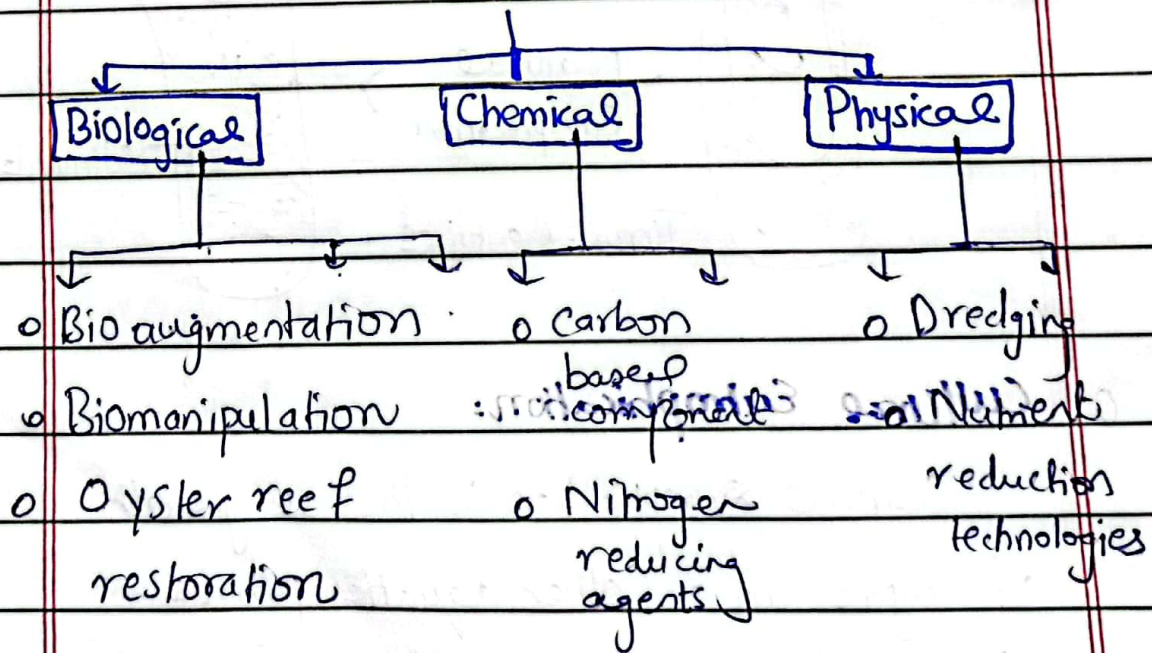 Biological
Chemical
Physical
o Bioaugmentation
o Biomanipulation
o Oyster reef
restoration
o Carbon
based
component
o Nitrogen
reducing
agents
o Dredging
o Nutrient
reduction
technologies